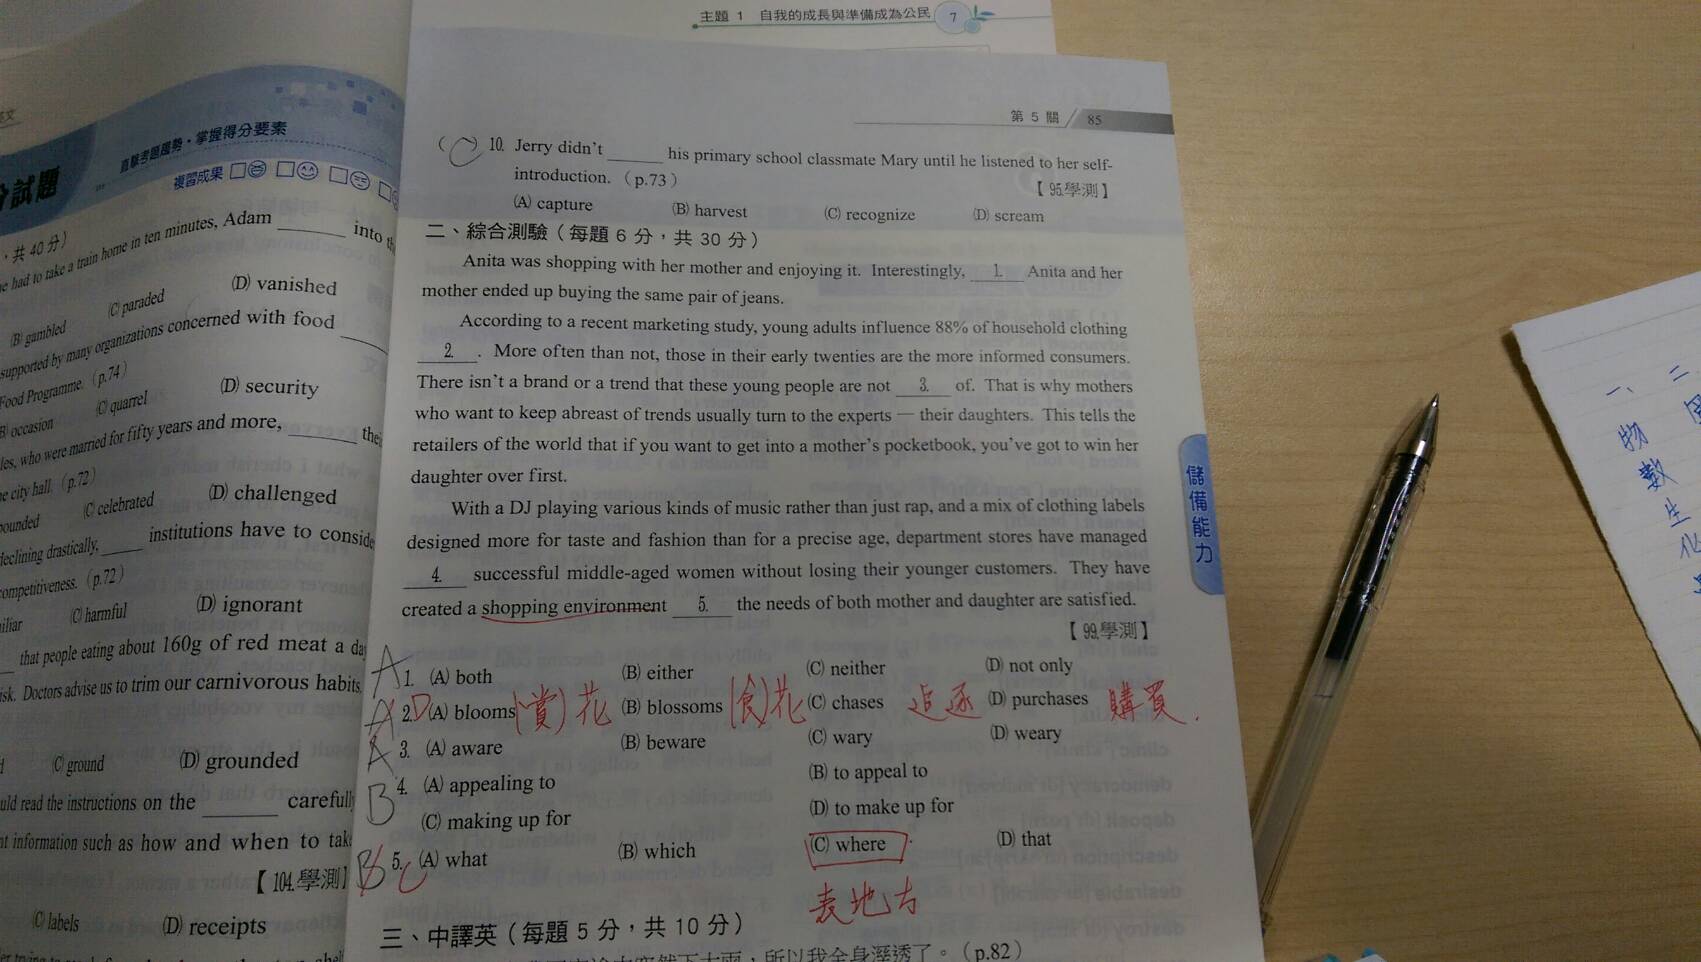 主題 1 自我的成長與準備成為公民 7
直擊考題風勢・掌握得分要素
複習成果
試題
，共 40 分）
had to take a train home in ten minutes, Adam ______ into
(B) gambled (C) paraded (D) vanished
supported by many organizations concerned with food ______
Food Programme.（p.74）
occasion (C) quarrel (D) security
who were married for fifty years and more, ______
city hall.（p.72）
(C) celebrated (D) challenged
declining drastically, ______ institutions have to
competitiveness.（p.72）
(C) harmful (D) ignorant
that people eating about 160g of red meat a
Doctors advise us to trim our carnivorous habits
(C) ground (D) grounded
read the instructions on the ______
information such as how and when to
【104.學測】
(C) labels (D) receipts
第 5 關 85
( C 10. Jerry didn't ______ his primary school classmate Mary until he listened to her self-
introduction.（p.73） 【95.學測】
(A) capture (B) harvest (C) recognize (D) scream
二、綜合測驗（每題 6 分，共 30 分）
Anita was shopping with her mother and enjoying it. Interestingly, 1. Anita and her
mother ended up buying the same pair of jeans.
According to a recent marketing study, young adults influence 88% of household clothing
2. . More often than not, those in their early twenties are the more informed consumers.
There isn't a brand or a trend that these young people are not 3. of. That is why mothers
who want to keep abreast of trends usually turn to the experts — their daughters. This tells the
retailers of the world that if you want to get into a mother's pocketbook, you've got to win her
daughter over first.
With a DJ playing various kinds of music rather than just rap, and a mix of clothing labels
designed more for taste and fashion than for a precise age, department stores have managed
4. successful middle-aged women without losing their younger customers. They have
created a shopping environment 5. the needs of both mother and daughter are satisfied.
【99.學測】
A 1. (A) both (B) either (C) neither (D) not only
A 2. D (A) blooms (賞)花 (B) blossoms (食)花 (C) chases 追逐 (D) purchases 購買.
A 3. (A) aware (B) beware (C) wary (D) weary
B 4. (A) appealing to (B) to appeal to
(C) making up for (D) to make up for
B 5. C (A) what (B) which (C) where (D) that
表地方
三、中譯英（每題 5 分，共 10 分）
所以我全身溼透了。（p.82）
儲備能力
一、二
物
數
生
化